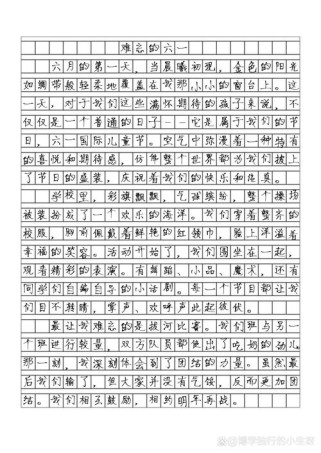 难忘的六一
六月的第一天，当晨曦初现，金色的阳光
如绸带般轻柔地覆盖在我那小小的窗台上。这
一天，对于我们这些满怀期待的孩子来说，不
仅仅是一个普通的日子——它是属于我们的节
日，六一国际儿童节。空气中弥漫着一种特有
的喜悦和期待感，仿佛整个世界都为我们披上
了节日的盛装，庆祝着我们的快乐和纯真。
学校里，彩旗飘飘，气球缤纷，整个操场
被装扮成了一个欢乐的海洋。我们穿着整齐的
校服，胸前佩戴着鲜艳的红领巾，脸上洋溢着
幸福的笑容。活动开始了，我们围坐在一起，
观看精彩的表演。有舞蹈、小品、魔术，还有
同学们自编自导的小话剧。每一个节目都让我
们目不转睛，掌声、欢呼声此起彼伏。
最让我难忘的是拔河比赛。我们班与另一
个班进行较量，双方队员都使出了吃奶的劲儿。
那一刻，我深刻体会到了团结的力量。虽然最
后我们输了，但大家并没有气馁，反而更加团
结。我们相互鼓励，相约明年再战。
@博学独行的小空罐